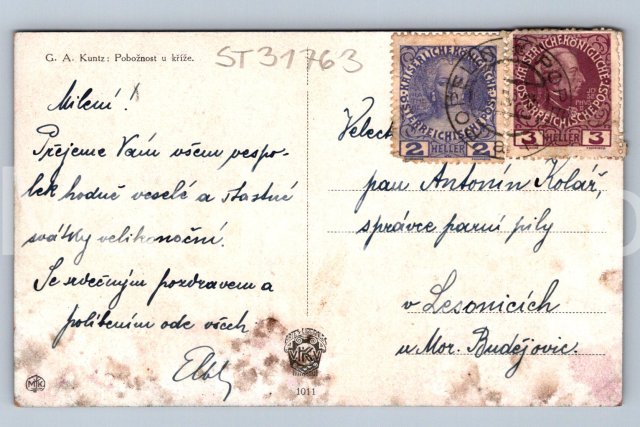 G. A. Kuntz: Pobožnost u kříže.
ST31763
Milení!
Přejeme Vám všem vespo-
lek hodně veselé a šťastné
svátky velikonoční.
Se srdečným pozdravem a
políbením ode všech
KAISERLICHE KÖNIGLICHE
OESTERREICHISCHE POST
2 HELLER 2
KAISERLICHE KÖNIGLICHE
OESTERREICHISCHE POST
3 HELLER 3
Velect
pan Antonín Kolář,
správce parní pily
v Lesonicích
u Mor. Budějovic.
1011